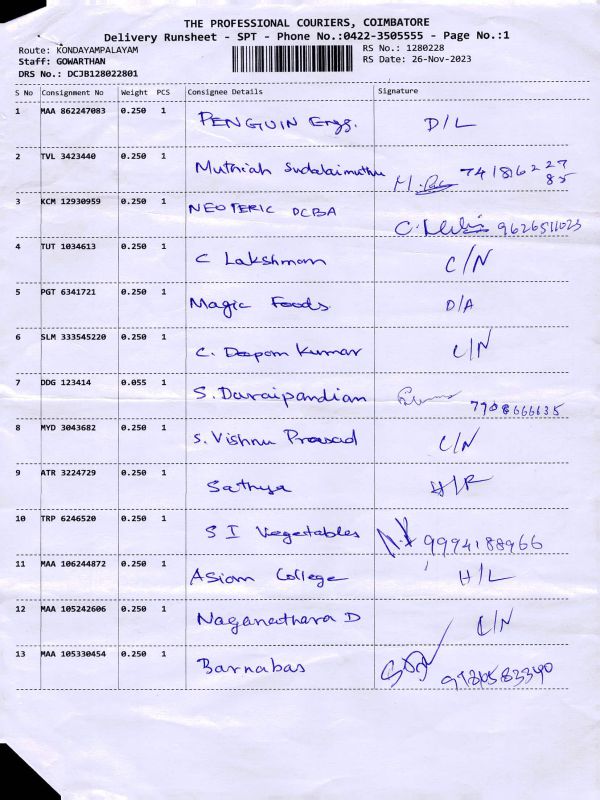 THE PROFESSIONAL COURIERS, COIMBATORE
Delivery Runsheet - SPT - Phone No.:0422-3505555 - Page No.:1
Route: KONDAYAMPALAYAM RS No.: 1280228
Staff: GOWARTHAN RS Date: 26-Nov-2023
DRS No.: DCJB128022801
S No Consignment No Weight PCS Consignee Details Signature
1 MAA 862247083 0.250 1 PENGUIN Engg. D/L
2 TVL 3423440 0.250 1 Muthiah Sudalaimuthu 74186227
85
3 KCM 12930959 0.250 1 NEOTERIC DCBA 9626511023
4 TUT 1034613 0.250 1 C Lakshmam C/N
5 PGT 6341721 0.250 1 Magic Foods D/A
6 SLM 333545220 0.250 1 C. Deepam Kumar C/N
7 DDG 123414 0.055 1 S. Duraipandian 7908666635
8 MYD 3043682 0.250 1 S. Vishnu Prasad C/N
9 ATR 3224729 0.250 1 Sathya H/R
10 TRP 6246520 0.250 1 S I Vegetables 9994188966
11 MAA 106244872 0.250 1 Asian College H/L
12 MAA 105242606 0.250 1 Naganathara D C/N
13 MAA 105330454 0.250 1 Barnabas